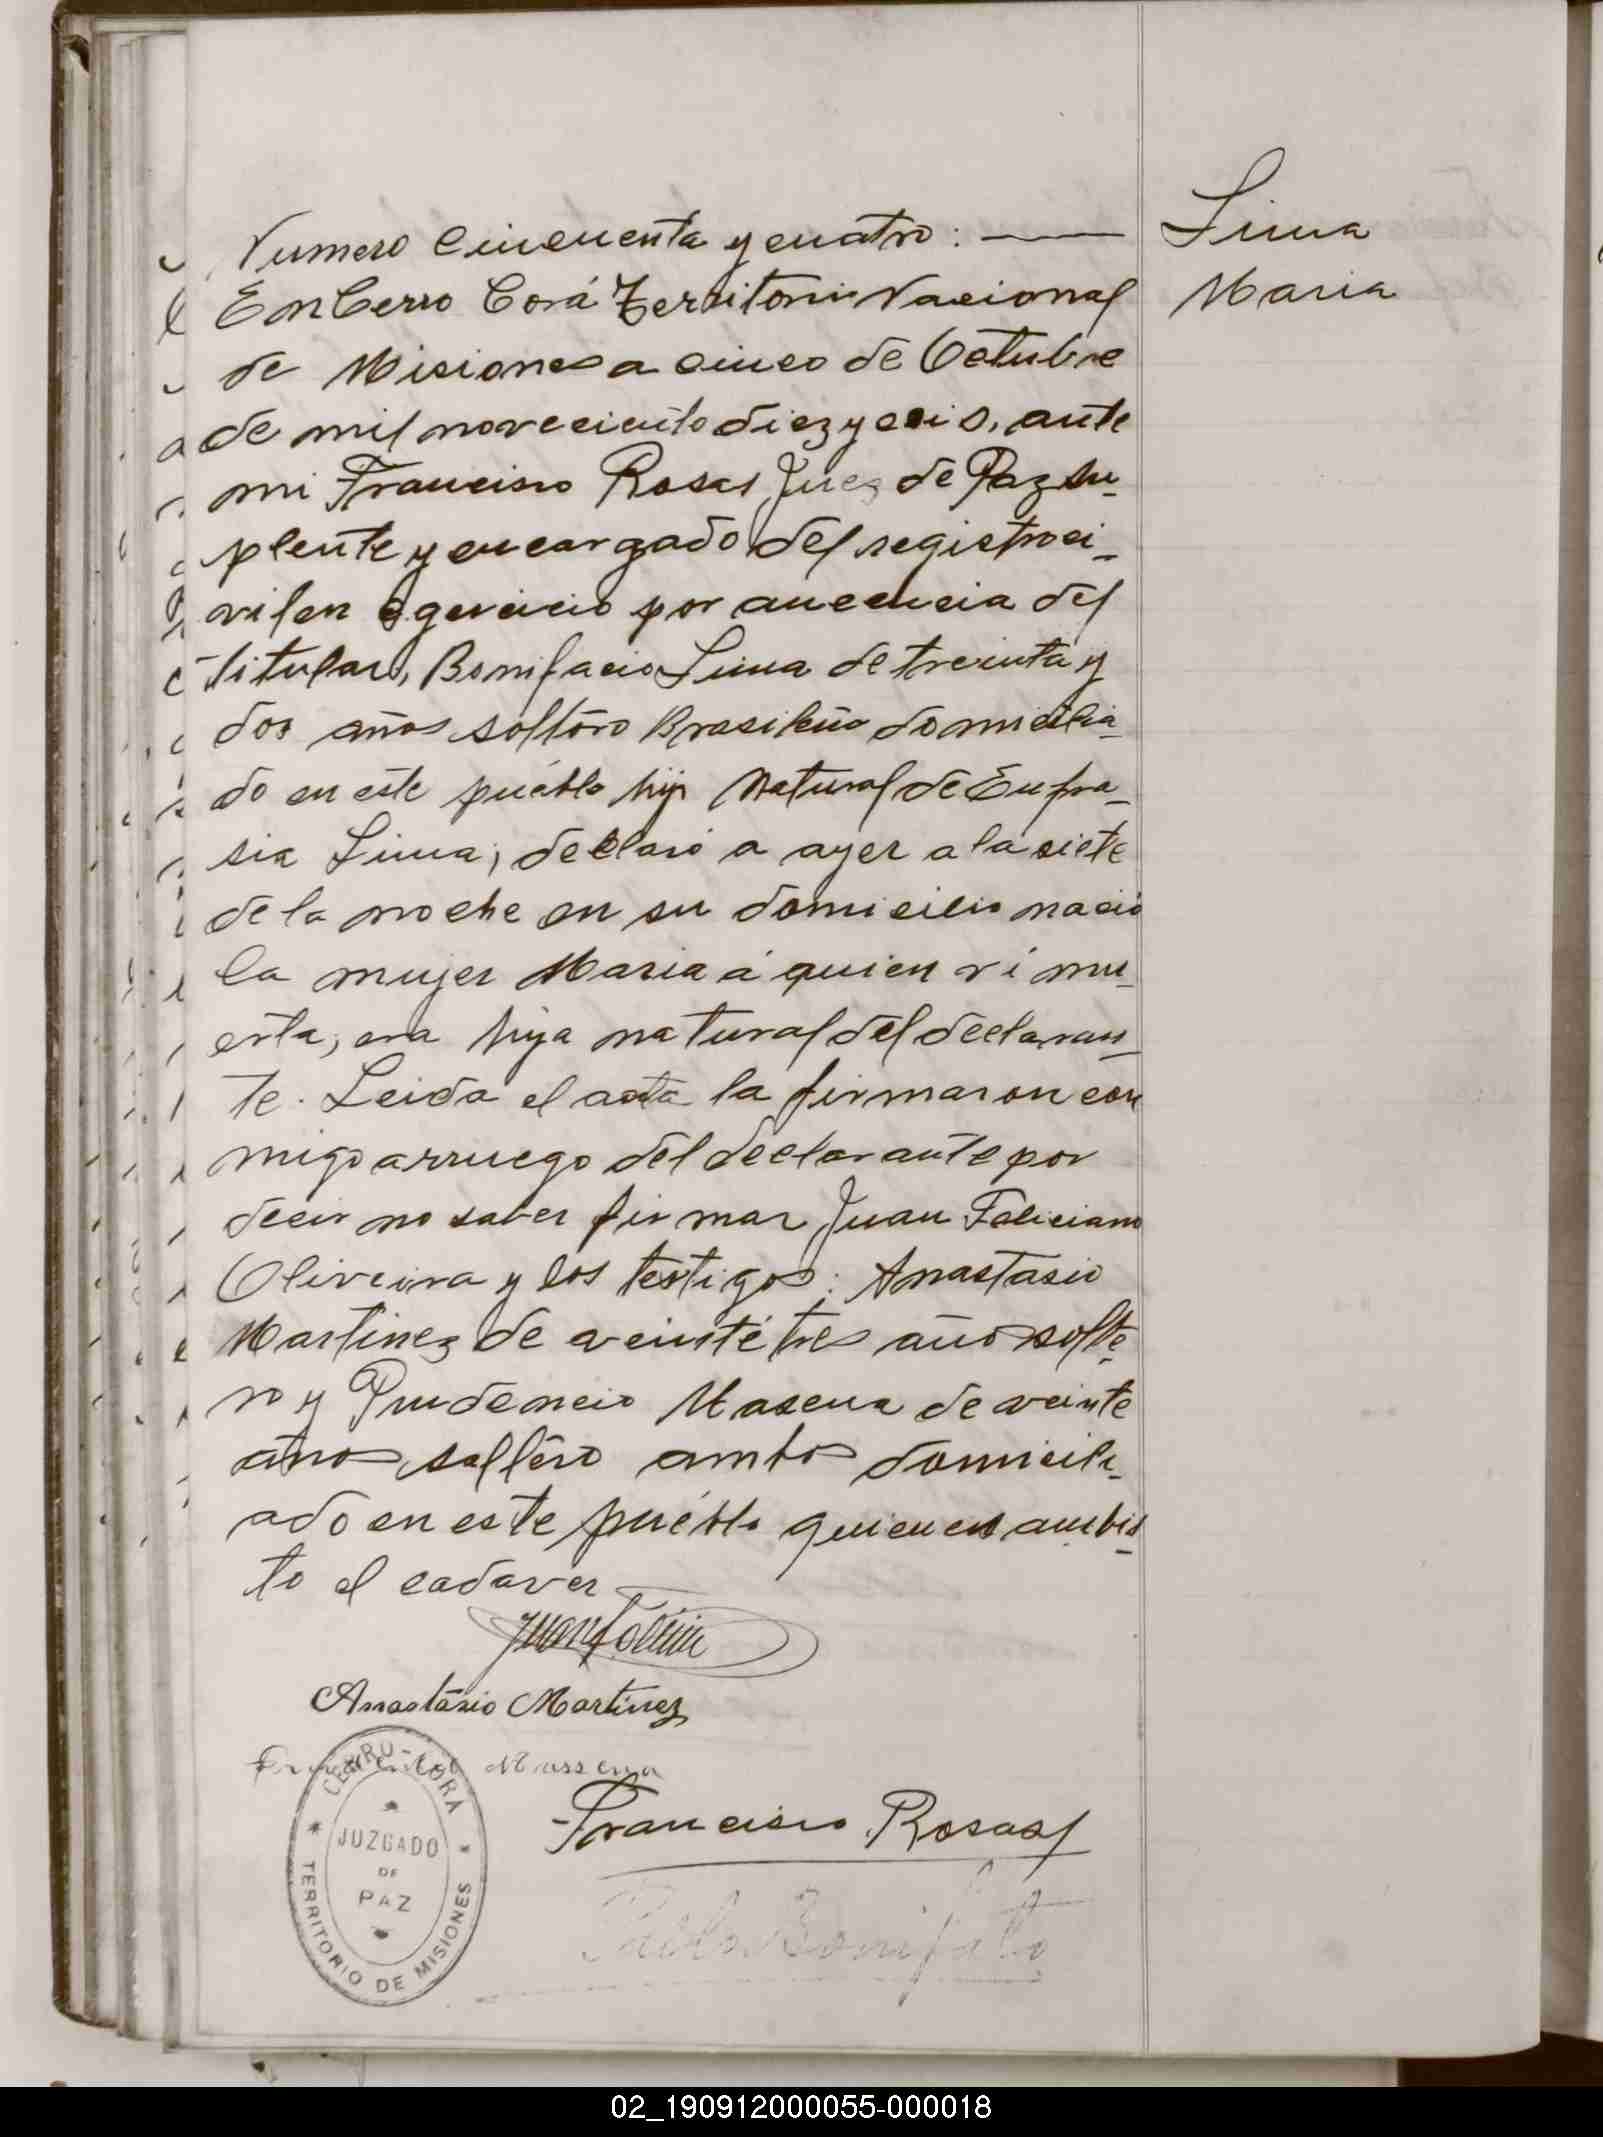 Numero Cincuenta y cuatro: ——
Lima
Maria
En Cerro Corá Territorio Nacional
de Misiones a cinco de Octubre
de mil noveciento diez y seis, ante
mi Francisco Rosas Juez de Paz su_
plente y encargado del registro ci_
vil en egercicio por aucencia del
titular, Bonifacio Lima de treinta y
dos años soltero Brasileño domicilia_
do en este pueblo hijo Natural de Eufra_
sia Lima; declaró a ayer a la siete
de la noche en su domicilio nacio
la mujer Maria á quien vi mu_
erta, era hija natural del declaran_
te. Leida el acta la firmaron con
migo arruego del declarante por
decir no saber firmar Juan Feliciano
Oliveira y los testigos: Anastasio
Martinez de veinté tres años solte_
ro y Prudencio Masena de veinte
años soltero ambos domicili_
ado en este pueblo quienen an bis_
to el cadaver
Anastásio Martinez
Massena
Francisco Rosas
CERRO-CORÁ
JUZGADO
DE
PAZ
TERRITORIO DE MISIONES
Pablo Bonifato
02_190912000055-000018